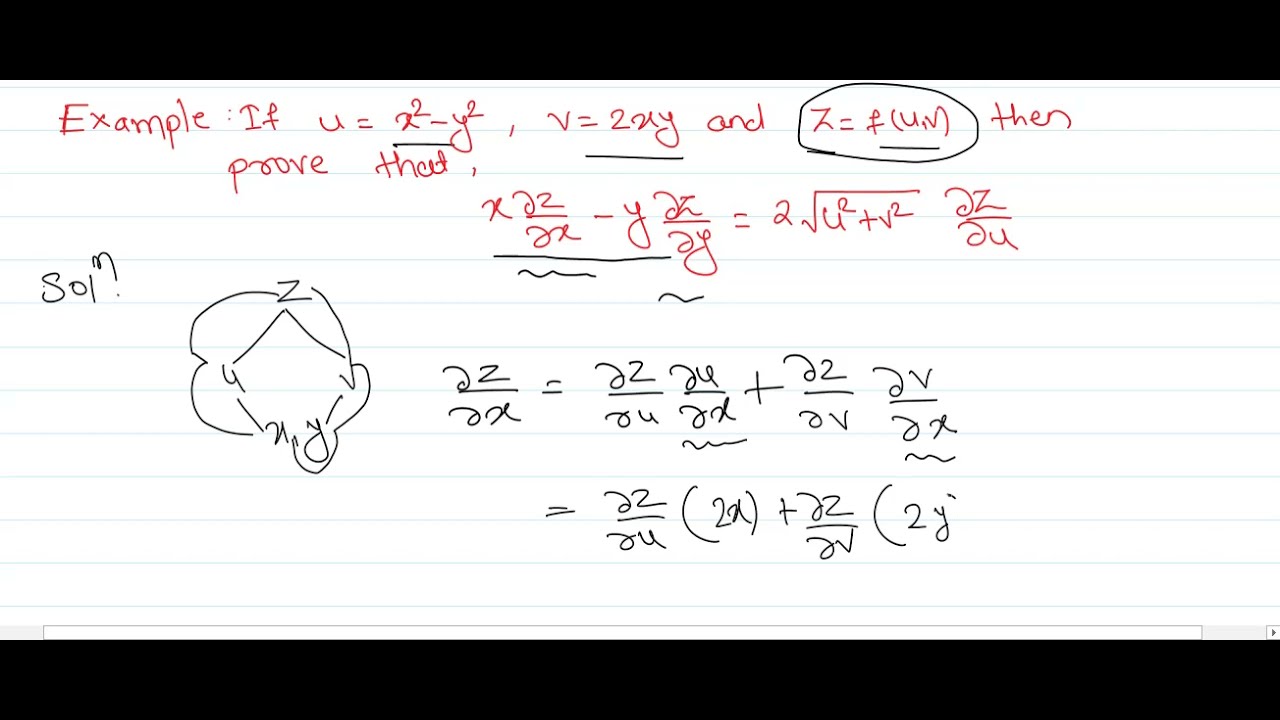 Example : If u = x² - y² , v = 2xy and z = f(u,v) then
prove that,
x ∂z/∂x - y ∂z/∂y = 2 √(u² + v²) ∂z/∂u
Solⁿ:
z
u v
x, y
∂z/∂x = ∂z/∂u ∂u/∂x + ∂z/∂v ∂v/∂x
= ∂z/∂u (2x) + ∂z/∂v (2y